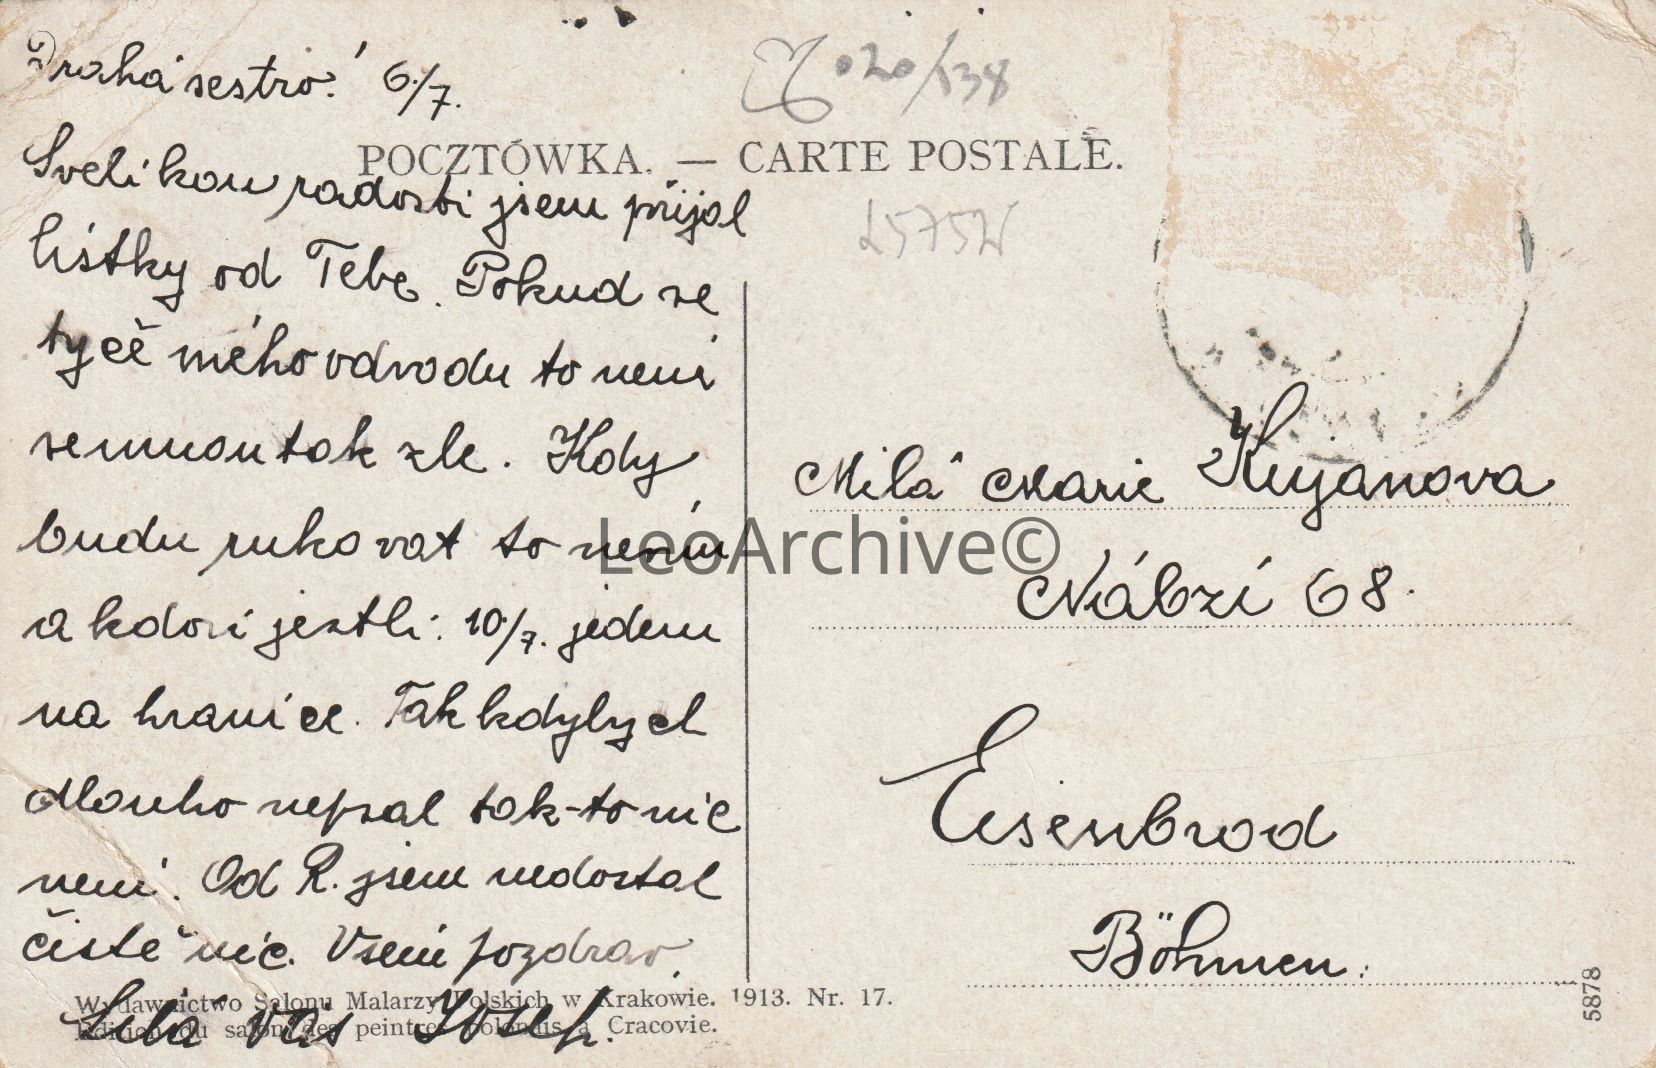 Drahá sestro! 6./7.
S velikou radostí jsem přijal
lístky od Tebe. Pokud se
tyče mého odvodu to není
semnou tak zle. Kdy
budu rukovat to nevím
a kdosi jestli: 10./7. jedem
na hranice. Tak kdybych
dlouho nepsal tak-to nic
není. Od R. jsem nedostal
čistě nic. Všem pozdrav
Vás Josef.
020/138
POCZTÓWKA. — CARTE POSTALE.
25752V
Milá Marie Kujanova
Nábzí 68.
Eisenbrod
Böhmen.
LeoArchive©
Wydawnictwo Salonu Malarzy Polskich w Krakowie. 1913. Nr. 17.
Edition du salon des peintres polonais à Cracovie.
5878